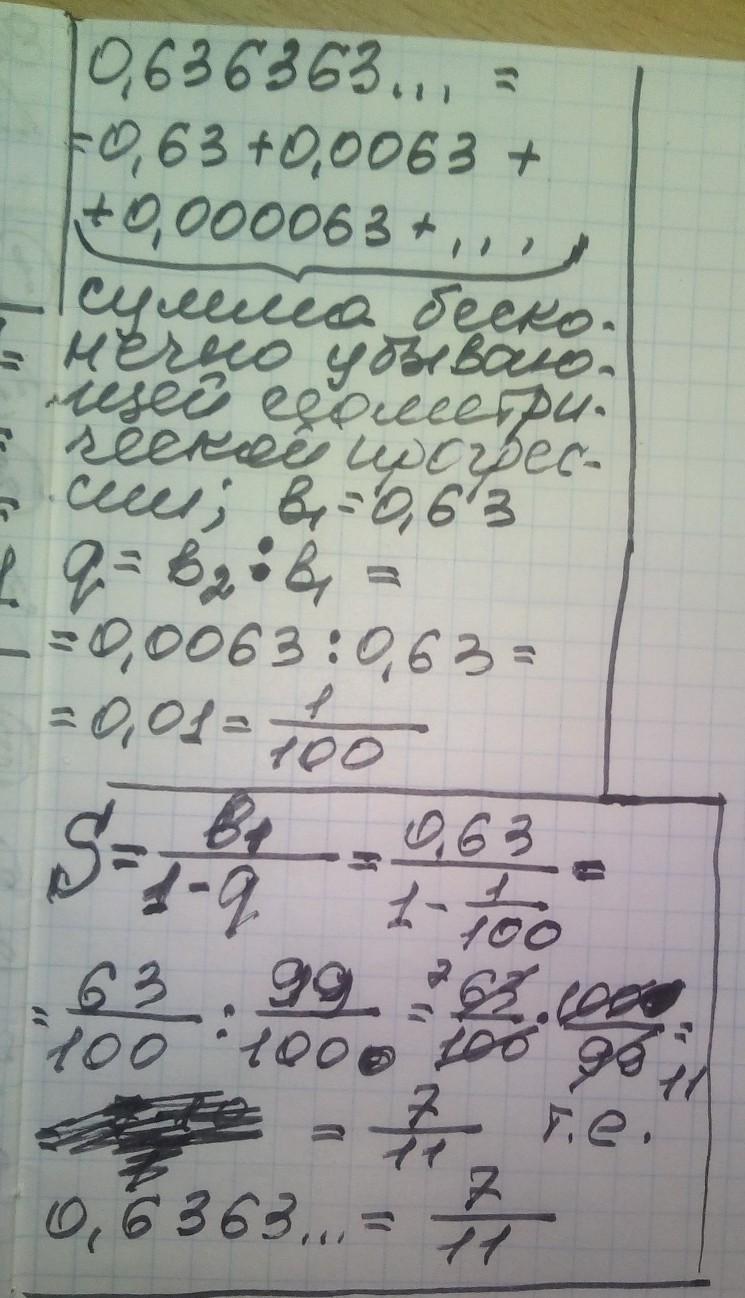 0,636363... =
=0,63+0,0063 +
+0,000063+...
сумма беско-
нечно убываю-
щей геометри-
ческой прогрес-
сии; b₁=0,63
q= b₂:b₁ =
=0,0063:0,63=
=0,01= 1/100
S= b₁/(1-q) = 0,63/(1- 1/100) =
= 63/100 : 99/100 = 7 63/100 · 100/99 11 =
= 7/11 т.е.
0,6363...= 7/11